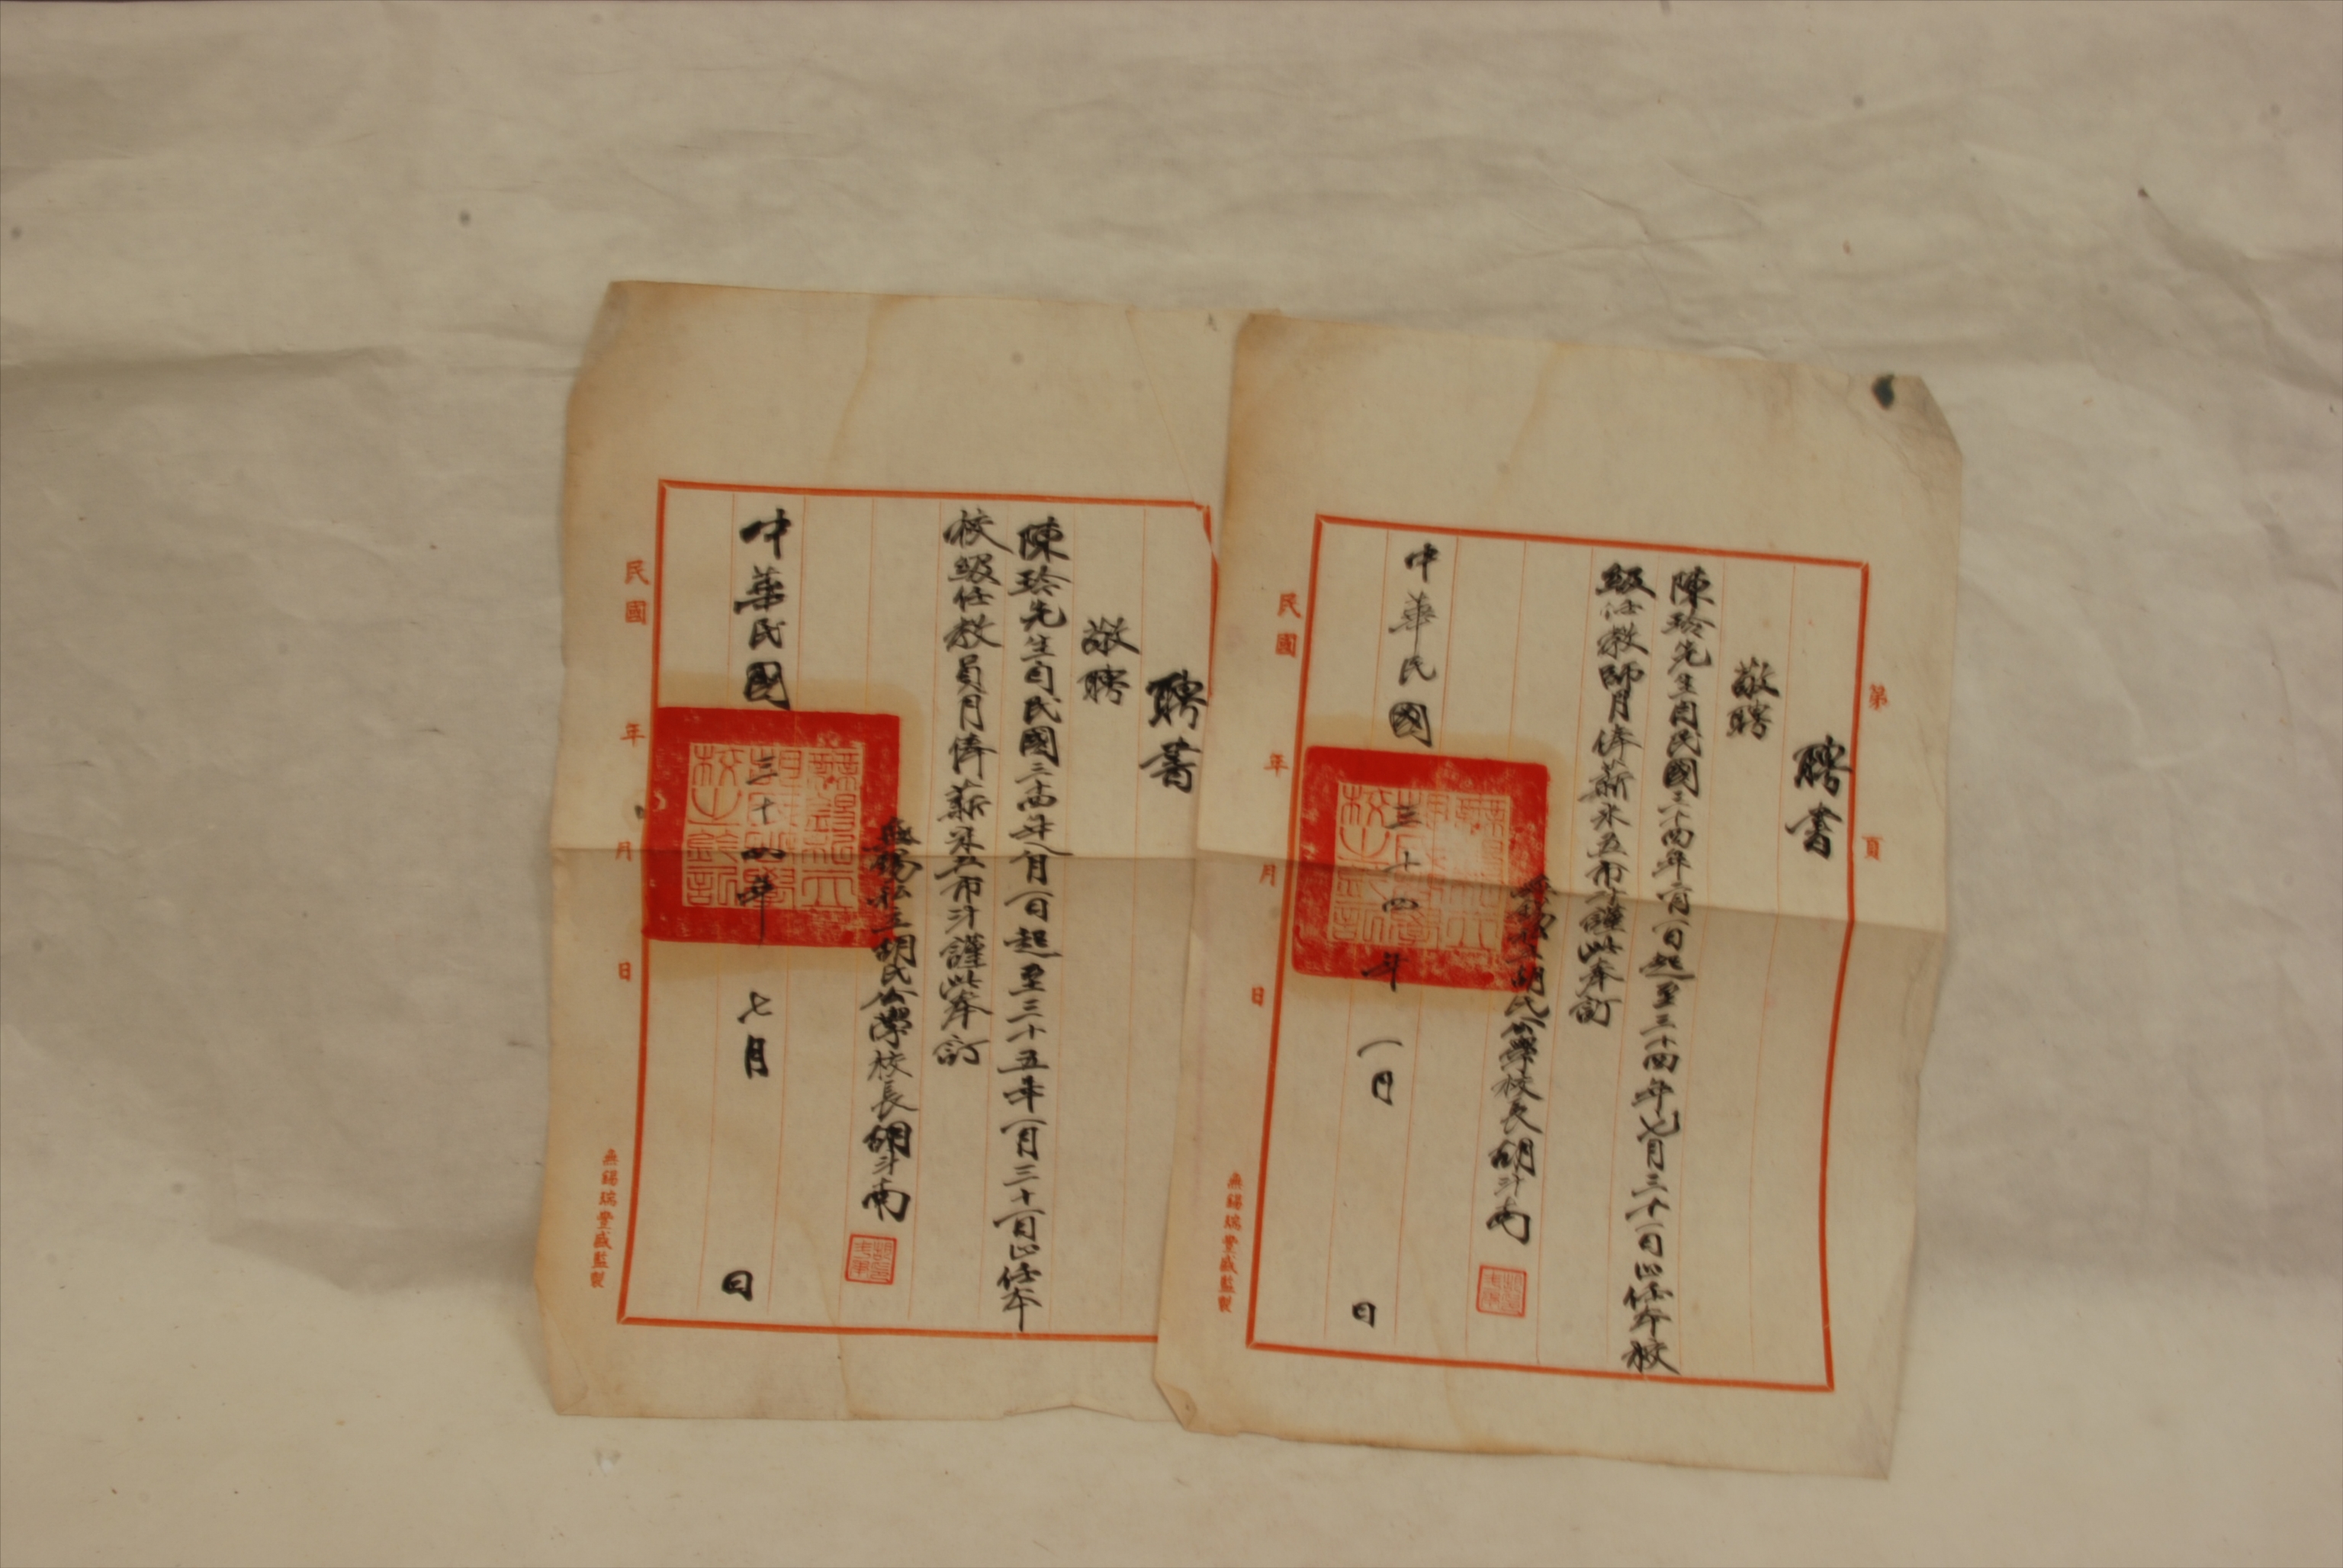 第 頁
聘書
敬聘
陳玲先生自民國三十四年二月一日起至三十四年七月三十一日止任本校
級任教師月俸薪米五市斗謹此奉訂
無錫私立胡氏公學校長胡斗南
中華民國三十四年一月 日
民國 年 月 日
無錫瑞豐盛監製
聘書
敬聘
陳玲先生自民國三十四年八月一日起至三十五年一月三十一日止任本
校級任教員月俸薪米五市斗謹此奉訂
無錫私立胡氏公學校長胡斗南
中華民國三十四年七月 日
無錫私立
胡氏公學
校之鈐記
民國 年 月 日
無錫瑞豐盛監製